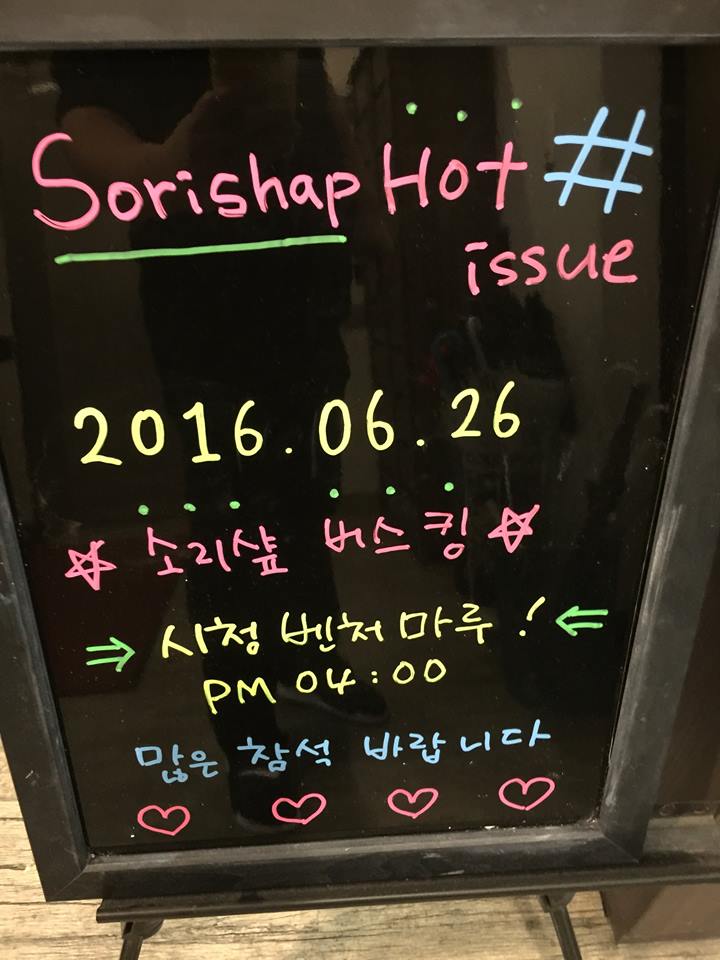 Sorishap Hot #
issue
2016.06.26
소리샾 버스킹
시청 벤처마루!
PM 04:00
많은 참석 바랍니다